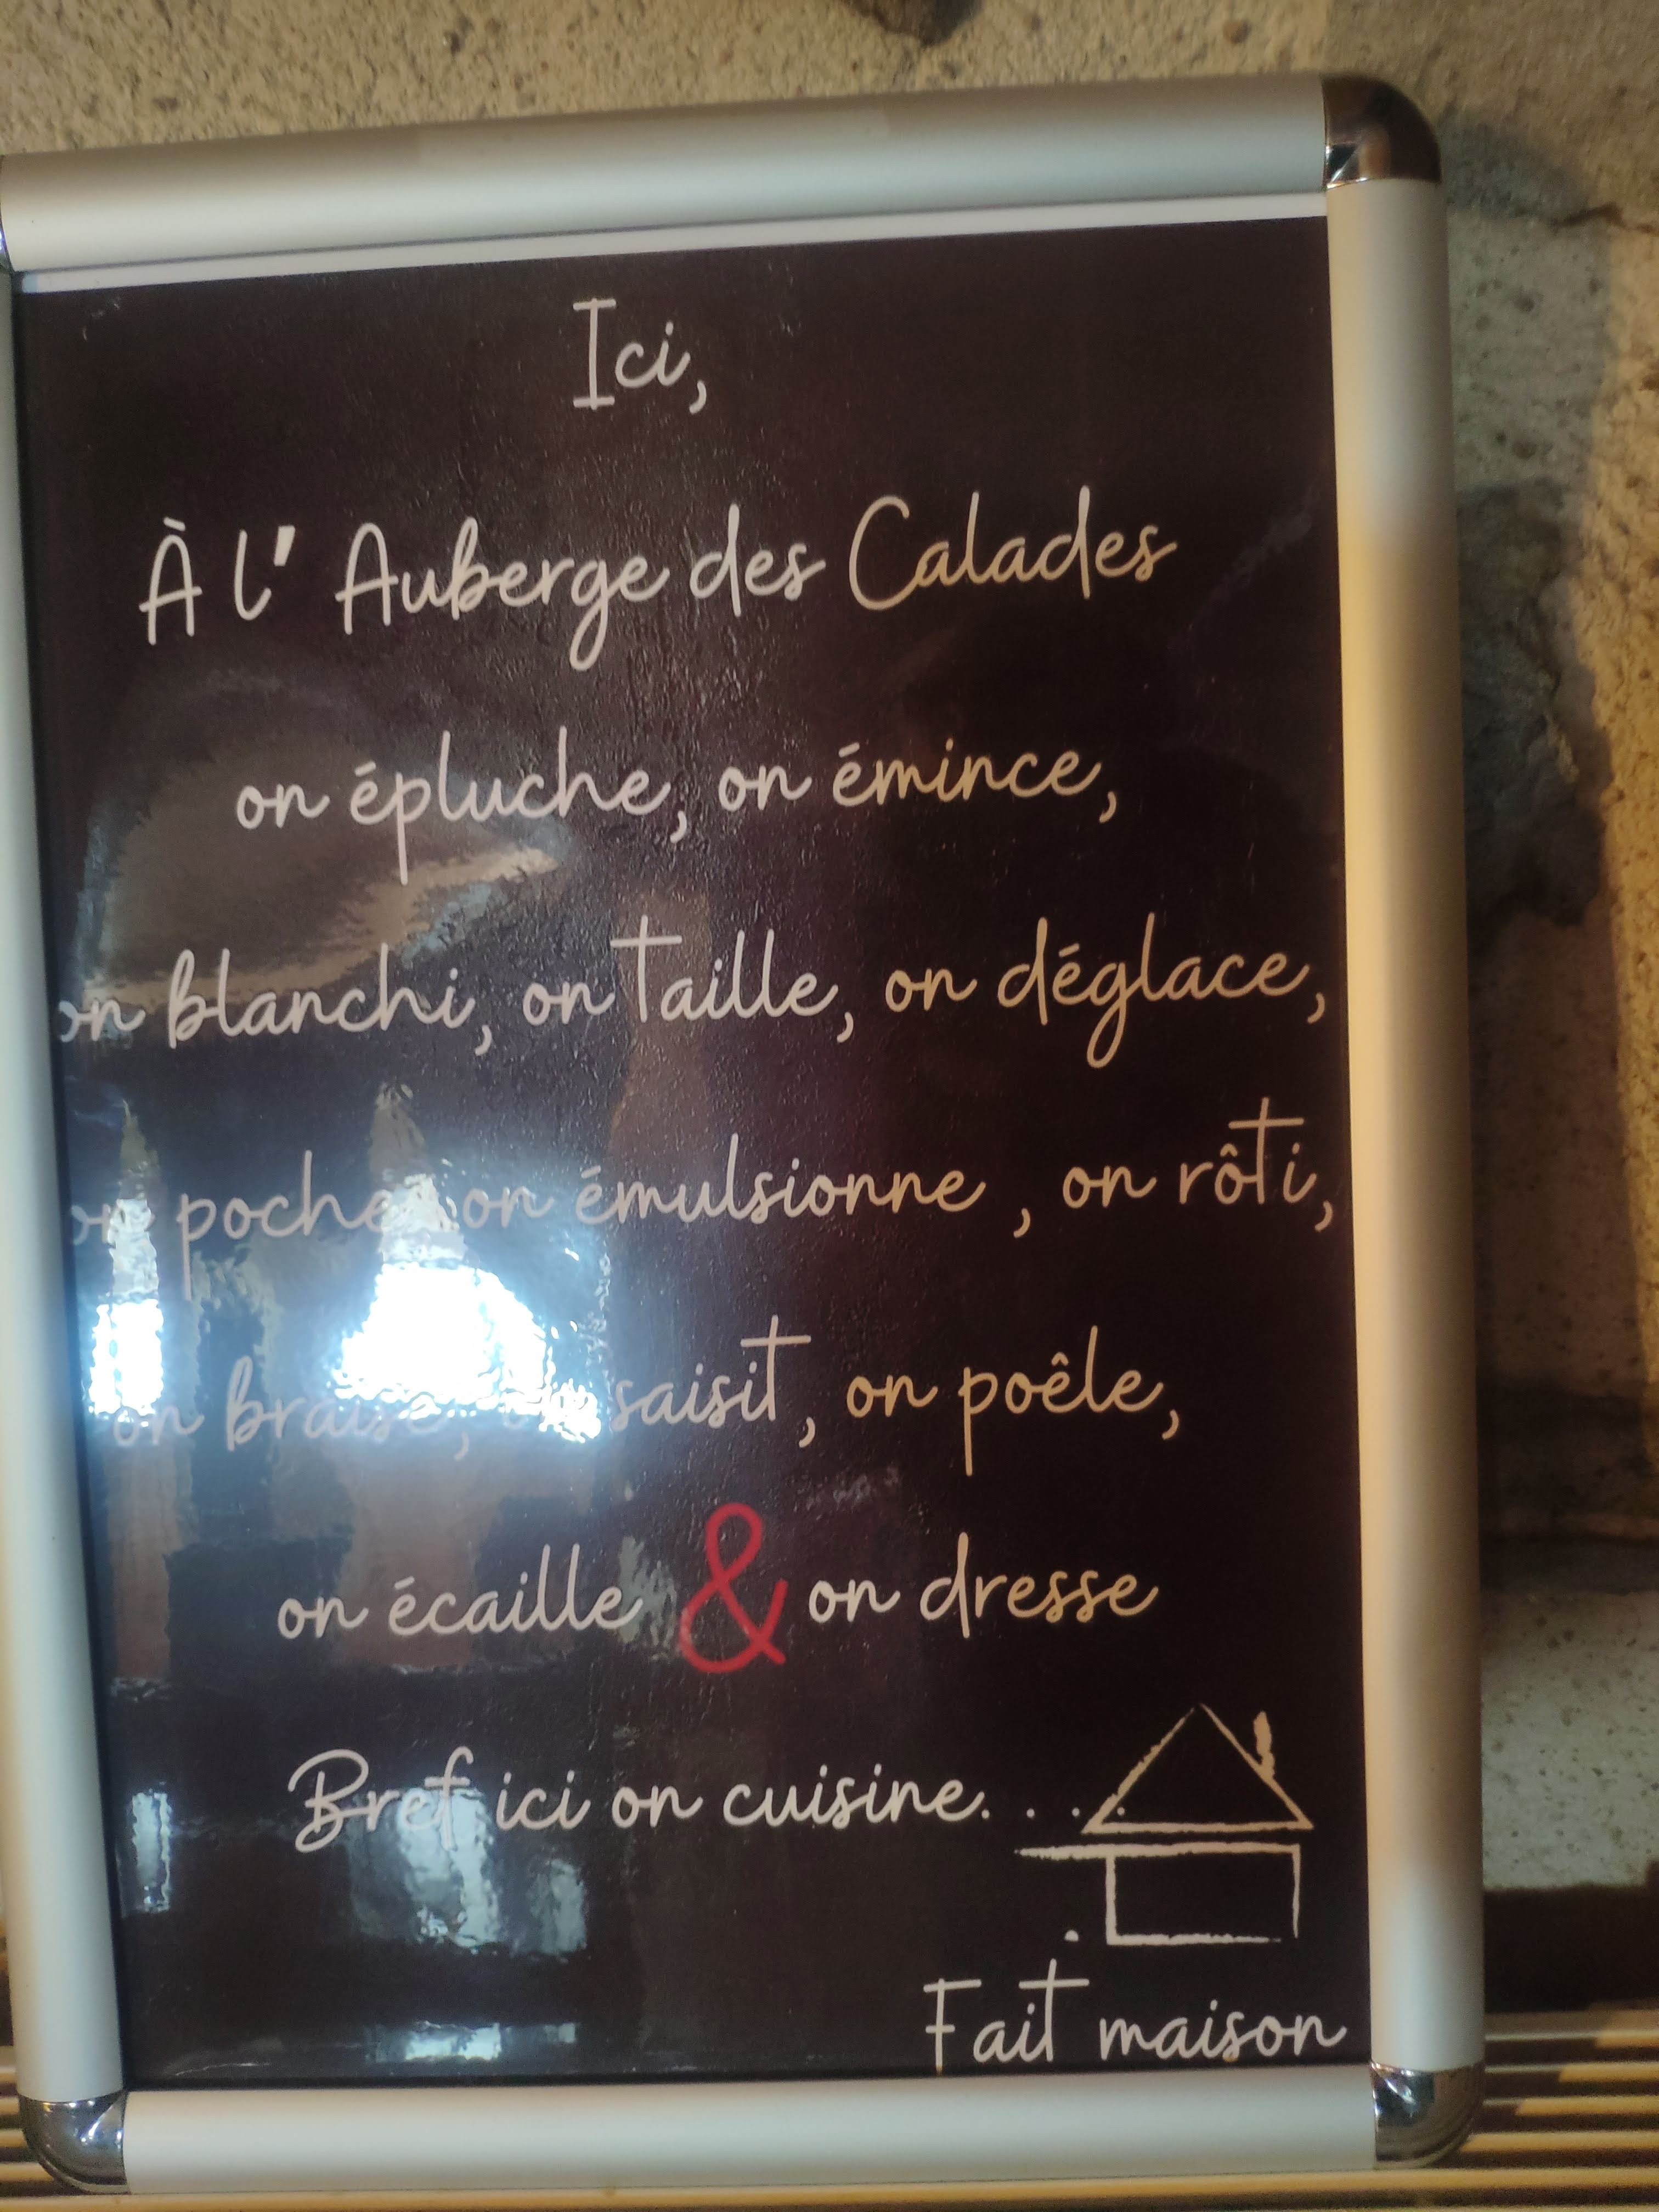 Ici,
À l' Auberge des Calades
on épluche, on émince,
on blanchi, on taille, on déglace,
on poche, on émulsionne , on rôti,
on braise, on saisit, on poêle,
on écaille & on dresse
Bref ici on cuisine. . . .
Fait maison